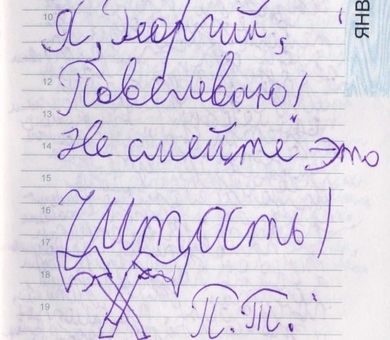 10
Я, Георгий,
11
12
Повелеваю!
13
14 Не смейте это
15
16
17
Читость!
18
19
П.Т.
ЯНВ